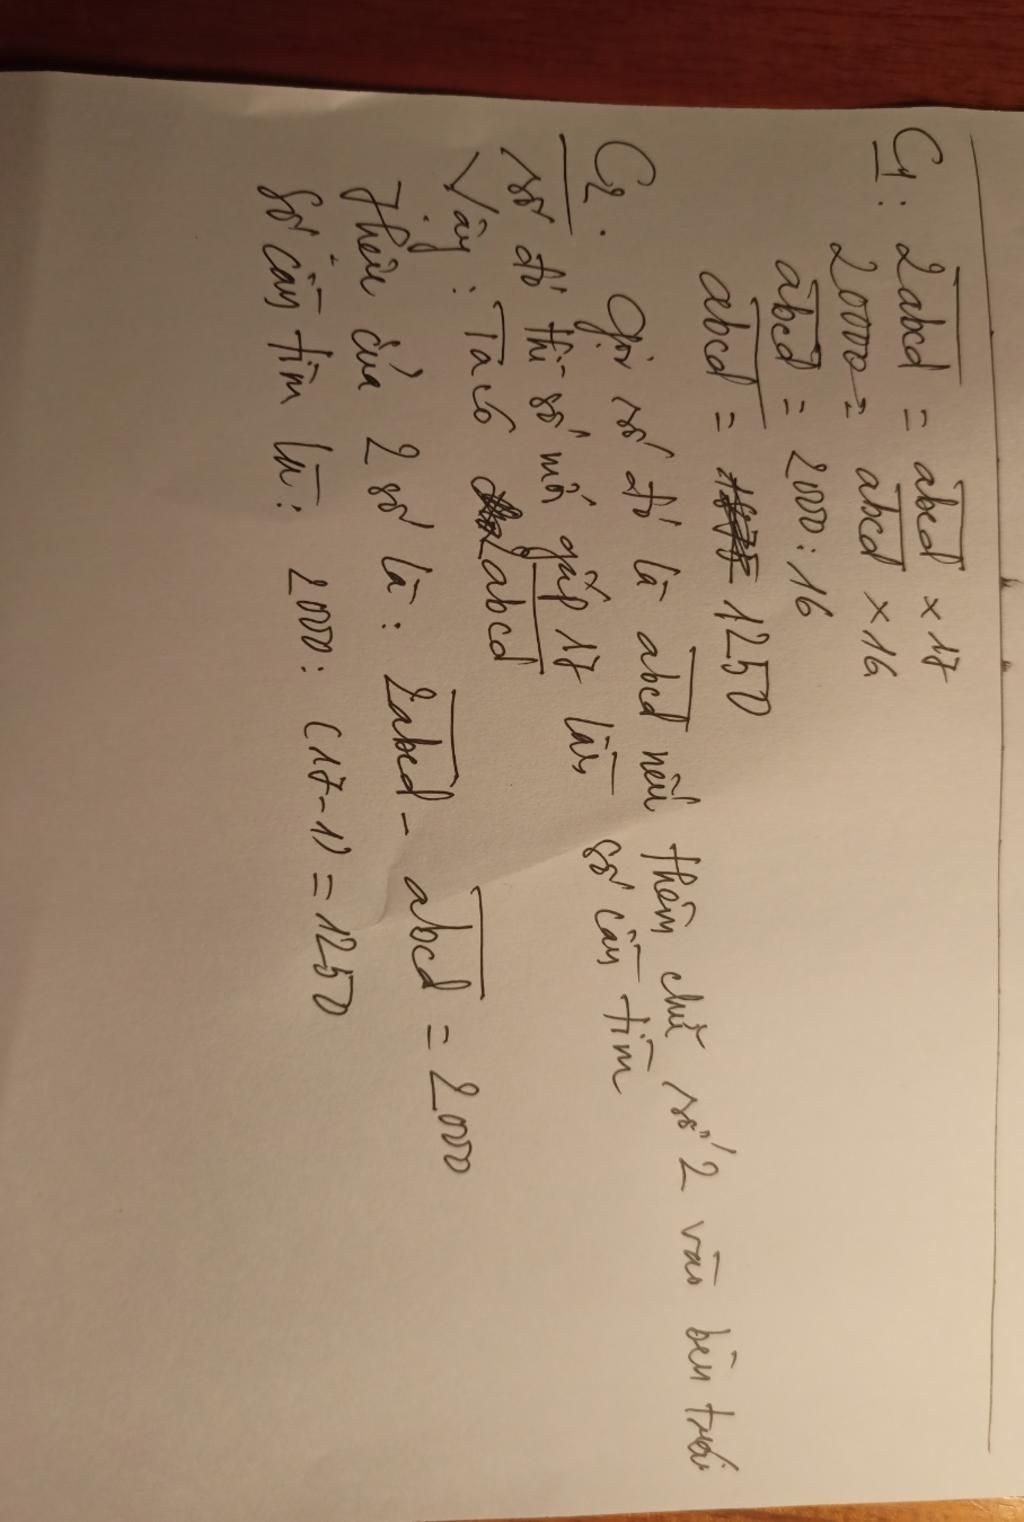 C1: 2abcd = abcd × 17
20000 = abcd × 16
abcd = 2000 : 16
abcd = 1250
C2. Gọi số đó là abcd nếu thêm chữ số 2 vào bên trái
số đó thì số mới gấp 17 lần số cần tìm
Vậy: Ta có 2abcd
Hiệu của 2 số là: 2abcd - abcd = 2000
Số cần tìm là: 2000 : (17-1) = 1250